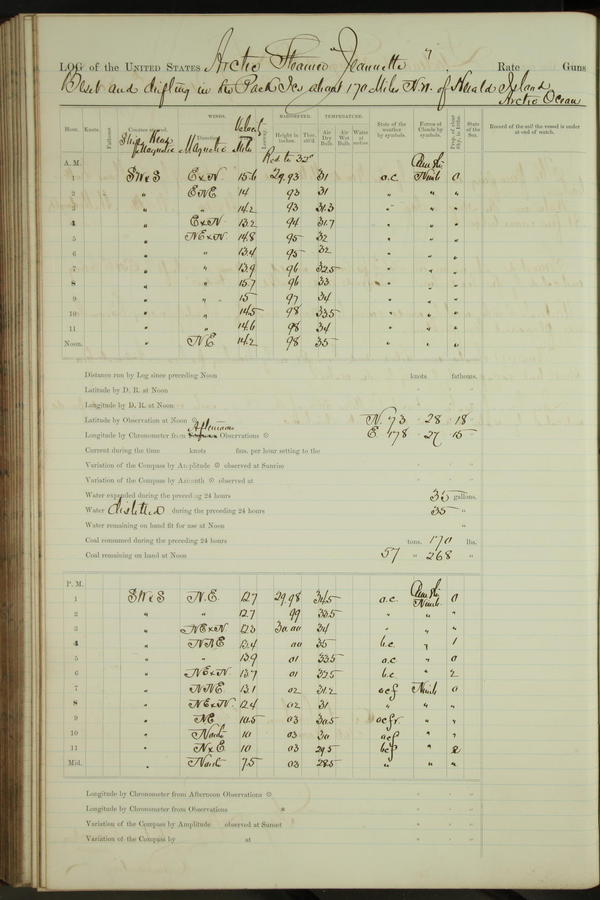 LOG of the UNITED STATES Arctic Steamer "Jeannette", Rate Guns
Beset and drifting in the Pack Ice about 170 Miles N.W. of Herald Island
Arctic Ocean
WINDS. BAROMETER. TEMPERATURE.
Hour. Knots. Fathoms. Courses steered. Direction. Velocity Leeway. Height in inches. Ther. att'd. Air Dry Bulb. Air Wet Bulb. Water at surface. State of the weather by symbols. Forms of Clouds by symbols. Prop. of clear sky, in tenths. State of the Sea. Record of the sail the vessel is under at end of watch.
Ship's Head Magnetic Magnetic Miles
Red to 32°
A. M. Cum Str
1 SW & S E x N 15.6 29.93 31 o.c. Nimb 0
2 " ENE 14 93 31 " " "
3 " " 14.2 93 31.3 " " "
4 " E x N 13.2 94 31.7 " " "
5 " NE x N 14.8 95 32 " " "
6 " " 13.4 95 32 " " "
7 " " 13.9 96 32.5 " " "
8 " " 15.7 96 33 " " "
9 " " 15 97 34 " " "
10 " " 14.5 98 33.5 " " "
11 " " 14.6 98 34 " " "
Noon. " NE 14.2 98 35 " " "
Distance run by Log since preceding Noon knots fathoms.
Latitude by D. R. at Noon
Longitude by D. R. at Noon
Latitude by Observation at Noon N. 73 28 18
Afternoon
Longitude by Chronometer from Observations E. 178 27 15
Current during the time knots fms. per hour setting to the
Variation of the Compass by Amplitude observed at Sunrise
Variation of the Compass by Azimuth observed at
Water expended during the preceding 24 hours 35 gallons.
Water distilled during the preceding 24 hours 35 "
Water remaining on hand fit for use at Noon "
Coal consumed during the preceding 24 hours tons. 170 lbs.
Coal remaining on hand at Noon 57 " 268 "
P. M. Cum Str
1 SW & S N.E. 12.7 29.98 34.5 o.c. Nimb. 0
2 " " 12.7 99 33.5 " " "
3 " NE x N 12.3 30.00 34 " " "
4 " NNE 12.4 00 35 b.c. " 1
5 " " 13.9 01 33.5 o.c. " 0
6 " NE x N. 13.7 01 32.5 b.c. " 2
7 " NNE 13.1 02 31.2 ocf Nimb 0
8 " NE x N. 12.4 02 31 " " "
9 " NE 10.5 03 30.5 ocfr. " "
10 " North 10 03 30 ocf " "
11 " N x E 10 03 29.5 bcf " 2
Mid. " North 7.5 03 28.5 " " "
Longitude by Chronometer from Afternoon Observations
Longitude by Chronometer from Observations *
Variation of the Compass by Amplitude observed at Sunset
Variation of the Compass by at